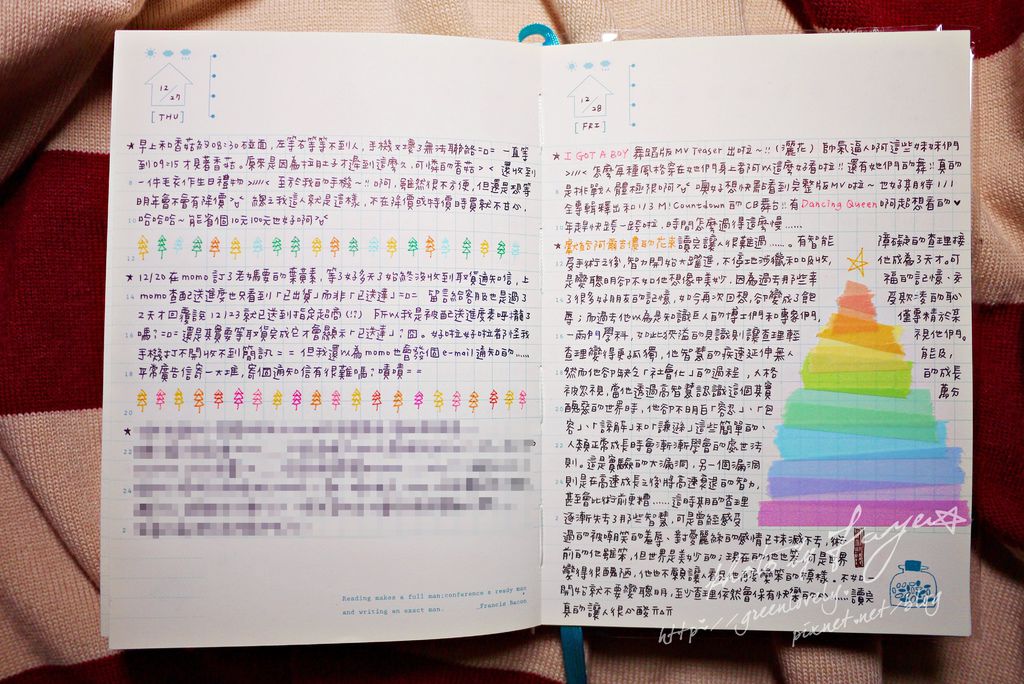 12/27
[THU]
★早上和香菇約08:30碰面,左等右等等不到人,手機又壞了無法聯絡=D= 一直等
到09:15才見著香菇。原來是因為拉肚子才遲到這麼久,可憐的香菇>< 還收到
一件毛衣作生日禮物>///< 至於我的手機~!!啊,雖然很不方便,但還是想等
明年會不會有降價 我這人就是這樣,不在降價或特價時買就不甘心,
哈哈哈~能省個10元100元也好啊
★12/20在momo訂了老媽要的葉黃素,等了好多天了始終沒收到取貨通知信,上
momo查配送進度也只看到「已出貨」而非「已送達」=D= 留言給客服也是過
2天才回覆說12/23就已送到指定超商(!!)
嗎?=D=還是其實要等取貨完成它才會顯示「已送達」?囧。好啦好啦都怪我
手機打不開收不到簡訊== 但我還以為momo也會發個e-mail通知的……
平常廣告信寄一大堆,寄個通知信有很難嗎?嘖嘖==
Reading makes a full man;conference a ready man
and writing an exact man.
_Francis Bacon
12/28
[FRI]
★I GOT A BOY 舞蹈版MV Teaser 出啦~!!(灑花) 帥氣逼人啊這些好好們
>///< 怎麼每種風格穿在她們身上都可以這麼好看啦!!還有她們的舞!!真的
是挑戰人體極限啊 噢好想快點看到完整版MV啦~也好期待1/1
全專輯釋出和1/3 M! Countdown的CB舞台!!有Dancing Queen啊超想看的♥
年趕快跨一跨啦,時間怎麼過得這麼慢……
★獻給阿爾吉儂的花束讀完讓人很難過……。有智能障礙的查理接
受手術之後,智力開始大躍進,不停地涉獵和吸收,他成為了天才。可
是變聰明卻不如他想像中美妙,因為過去那些幸福的記憶、交
了很多好朋友的記憶,如今再次回想,卻變成了飽受欺凌的恥
辱;而過去他以為是知識巨人的博士們和專家們,僅專精於某
一兩門學科,如此狹溢的見識則讓查理輕視他們。
查理變得更孤獨,他智慧的疾速延伸無人能及,
然而他卻缺乏「社會化」的過程,人格的成長
被忽視,當他透過高智慧認識這個其實萬分
醜惡的世界時,他卻不明白「容忍」、「包
容」、「諒解」和「謙遜」這些簡單的、
人類正常成長時會漸漸學會的處世法
則。這是實驗的大漏洞,另一個漏洞
則是在高速成長之後將高速衰退的智力,
甚至會比術前更糟……這時期的查理
逐漸失去了那些智慧,可是曾經感受
過的被嘲笑的羞辱、對愛麗絲的感情已抹滅不去,從
前的他雖笨,但世界是美妙的;現在的他也笨,可是世界
變得很醜陋,他也不願讓人看
開始就不要變聰明,至少查理依然會保有快樂的心……讀完
真的讓人很心酸
photo by Faye☆
http://greenlovey.
pixnet.net/blog